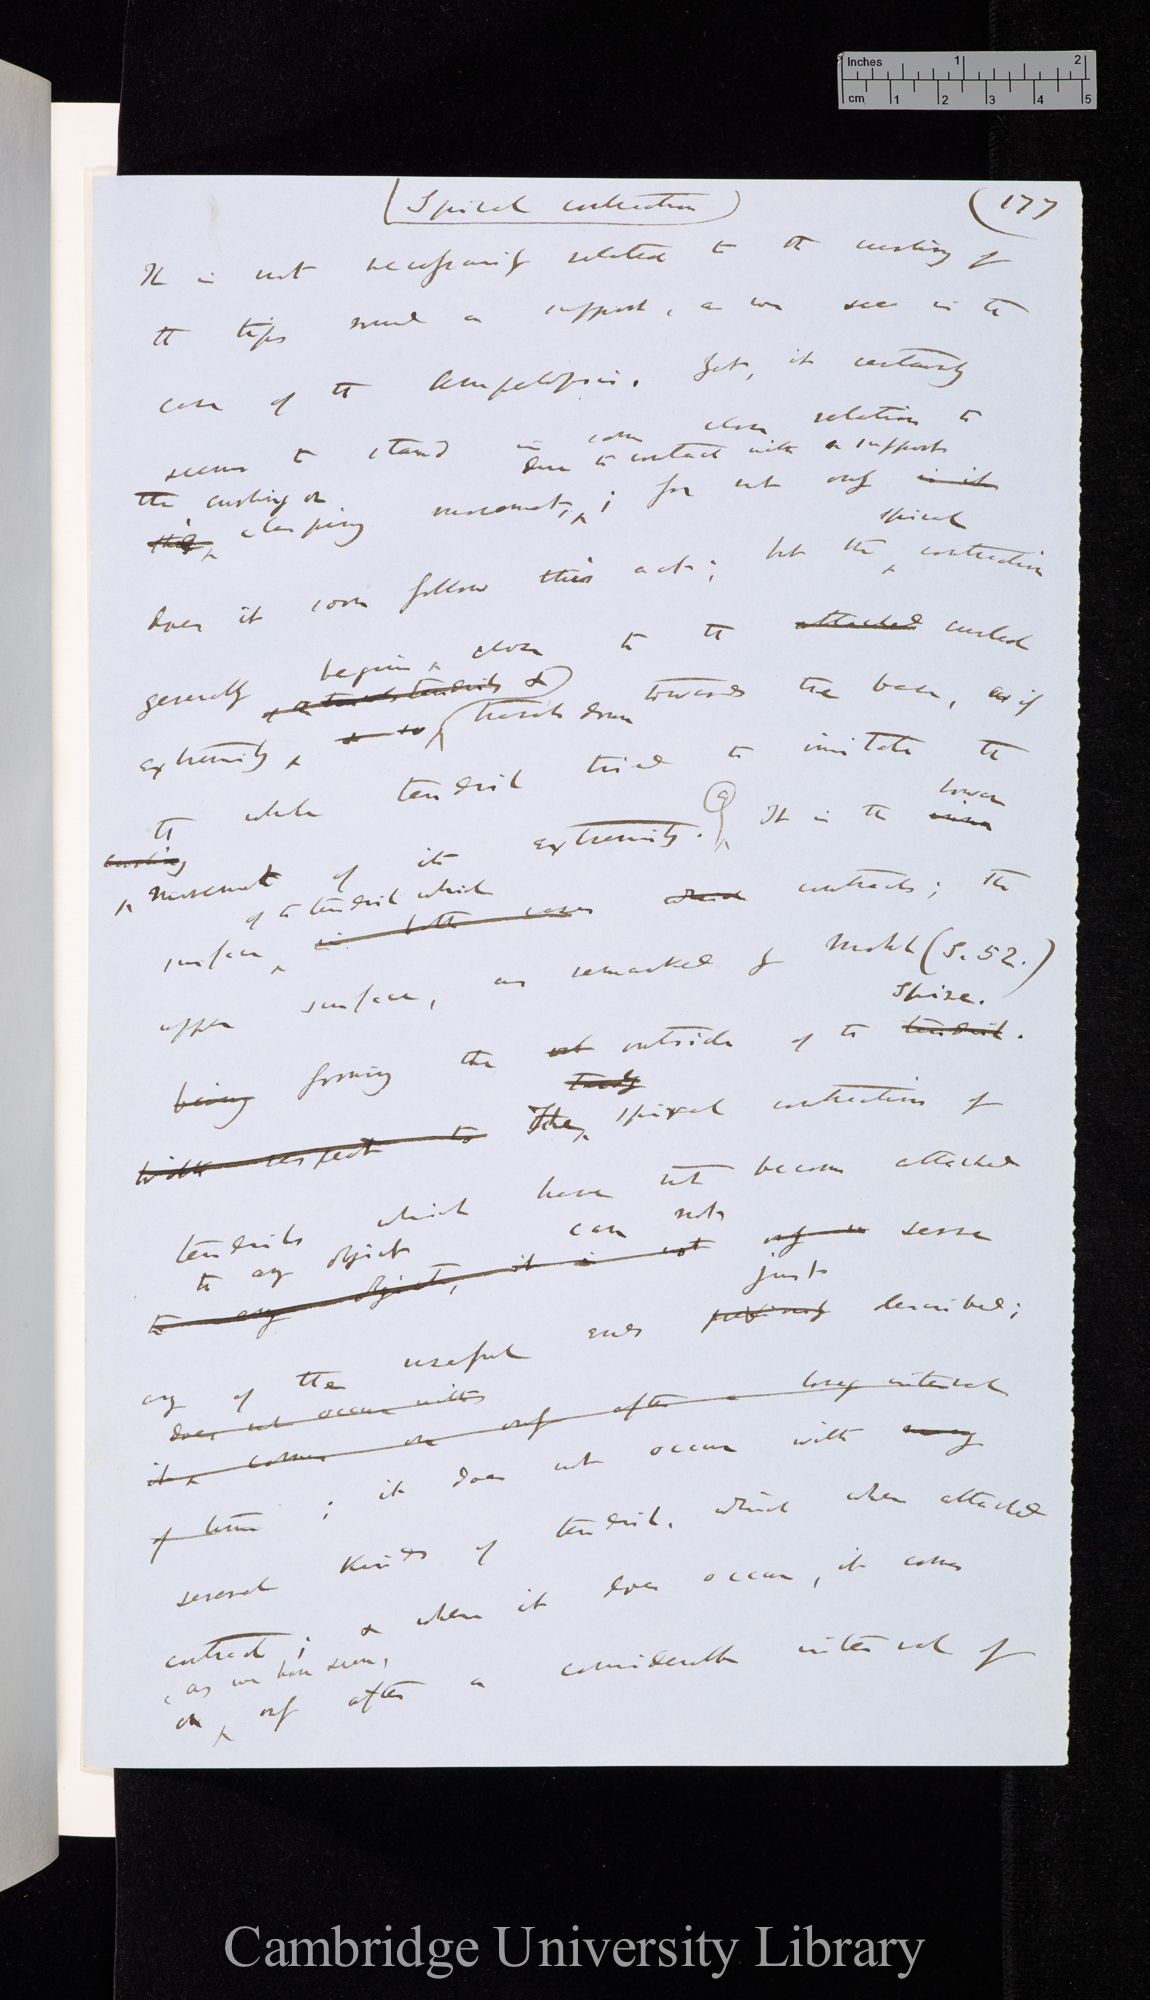 Inches 1 2
cm 1 2 3 4 5
(Spiral contraction) (177
It is not necessarily related to the curling of
the tips round a support, as we see in the
case of the Ampelopsis. Yet, it certainly
seems to stand in some close relation to
the curling or due to contact with a support
this clasping movement, ; for not only is it
spiral
does it soon follow this act; but the contraction
generally begins close to the attached curled
extremity & travels down towards the base, as if
the whole tendril tried to imitate the
lower
curling
movement of its extremity. (a) It is the
of the tendril which
surface in both cases which contracts; the
upper surface, as remarked by Mohl (S. 52.)
spire.
being forming the outside of the tendril.
with respect to The spiral contraction of
tendrils which have not become attached
to any object can not
to any object, it is not only serve
just
any of the useful ends previously described;
does not occur with
it comes on only after a long interval
of time ; it does not occur with many
several kinds of tendril, which when attached
contract; & when it does occur, it comes
, as we have seen,
on only after a considerable interval of
Cambridge University Library